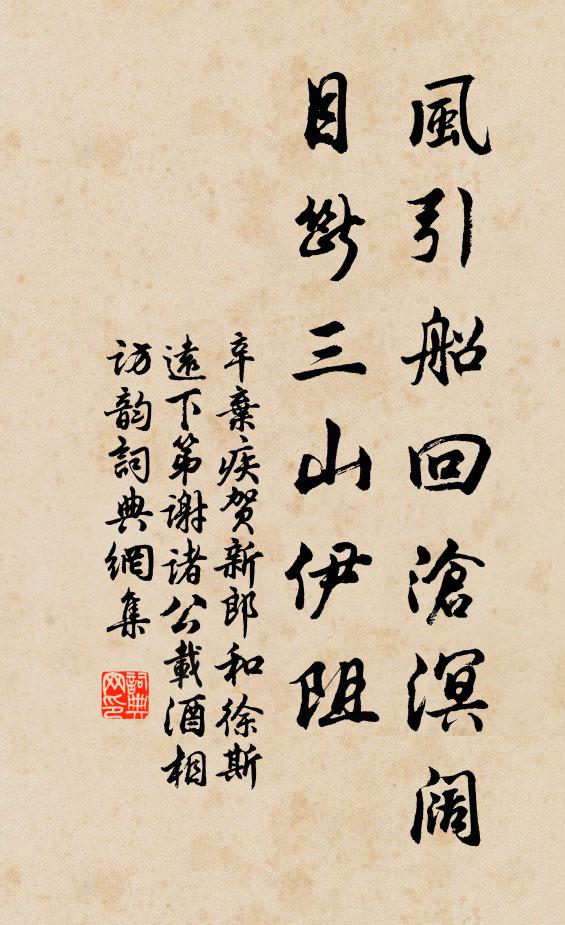 風引船回滄溟阔
目斷三山伊阻
辛棄疾贺新郎和徐斯
遠下第謝诸公載酒相
访韵詞典網集
詞典网印